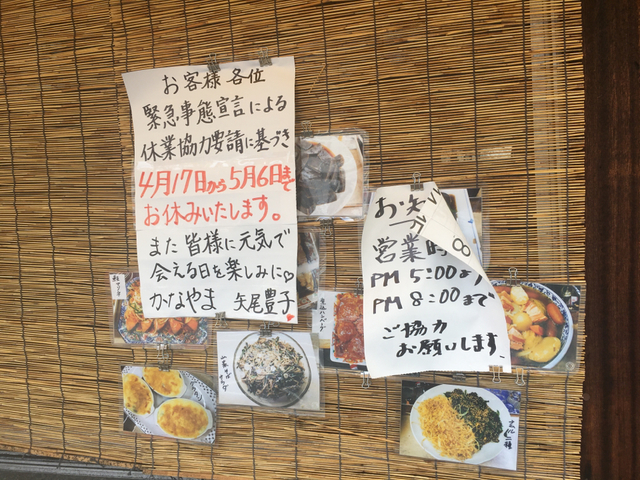 お客様 各位
緊急事態宣言による
休業協力要請に基づき
4月17日から5月6日まで
お休みいたします。
また 皆様に元気で
会える日を楽しみに♡
かなやま 矢尾豊子
お知
営業時
8
PM 5:00より
PM 8:00まで
ご協力
お願いします。